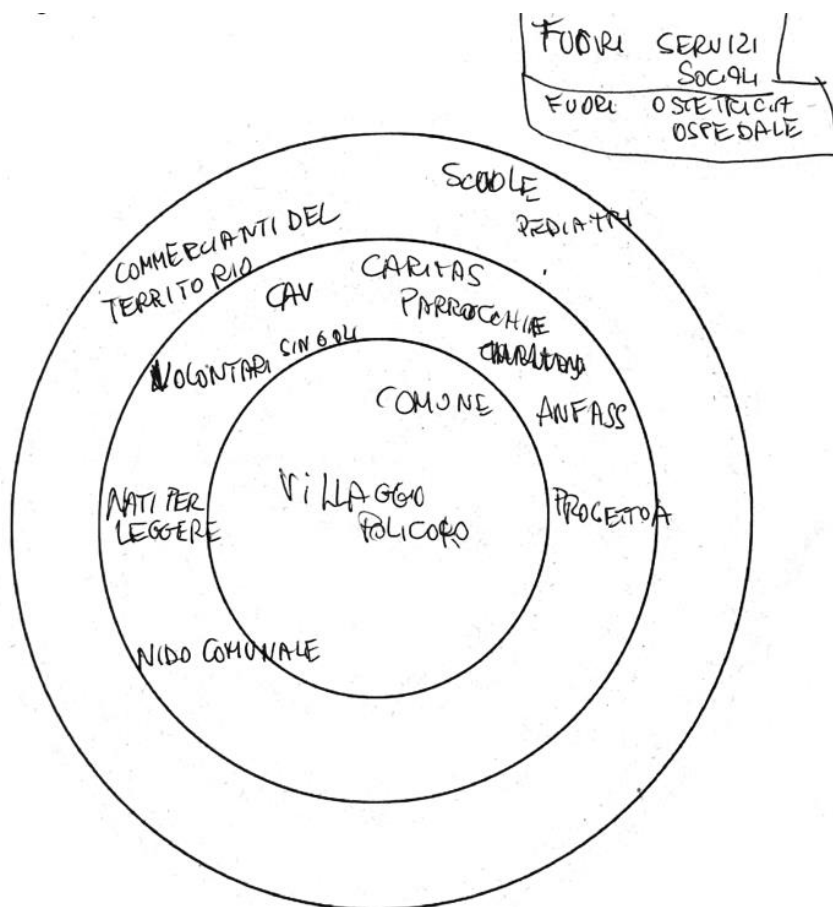 FUORI SERVIZI
SOCIALI
FUORI OSTETRICIA
OSPEDALE
SCUOLE
PEDIATRI
COMMERCIANTI DEL
TERRITORIO
CARITAS
CAV
PARROCCHIE
VOLONTARI SINGOLI
COMUNE
ANFASS
VILLAGGIO
POLICORO
NATI PER
LEGGERE
PROGETTO A
NIDO COMUNALE